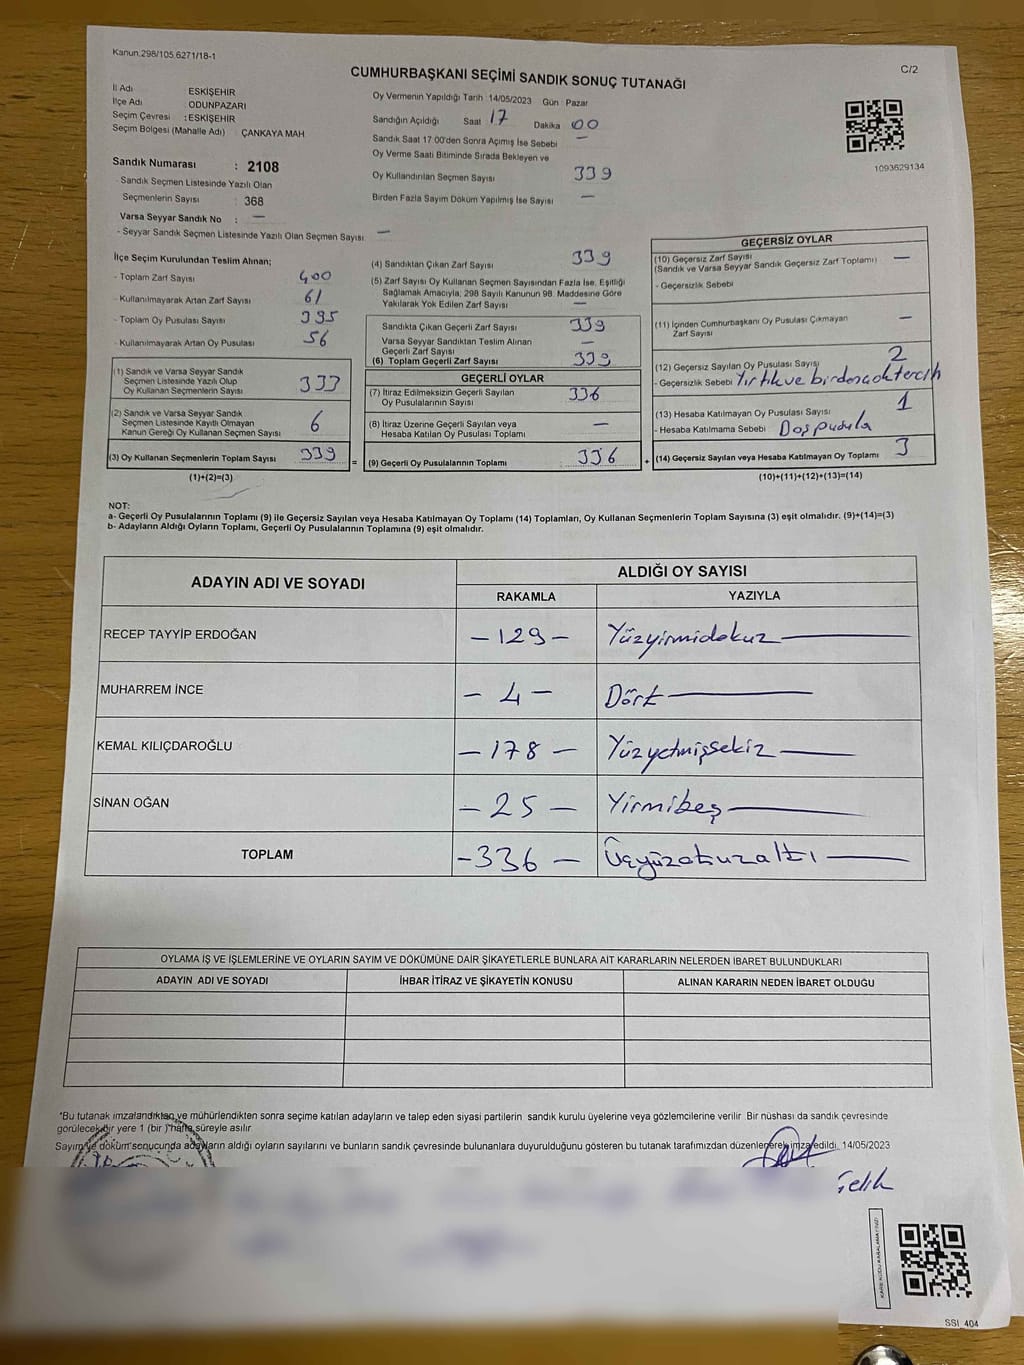 Kanun.298/105.6271/18-1
C/2
CUMHURBAŞKANI SEÇİMİ SANDIK SONUÇ TUTANAĞI
İl Adı ESKİŞEHİR
İlçe Adı ODUNPAZARI
Seçim Çevresi : ESKİŞEHİR
Seçim Bölgesi (Mahalle Adı) ÇANKAYA MAH
Sandık Numarası : 2108
Sandık Seçmen Listesinde Yazılı Olan
Seçmenlerin Sayısı : 368
Varsa Seyyar Sandık No : —
- Seyyar Sandık Seçmen Listesinde Yazılı Olan Seçmen Sayısı —
Oy Vermenin Yapıldığı Tarih : 14/05/2023 Gün : Pazar
Sandığın Açıldığı Saat 17 Dakika 00
Sandık Saat 17 00'den Sonra Açımış İse Sebebi —
Oy Verme Saati Bitiminde Sırada Bekleyen ve
Oy Kullandırılan Seçmen Sayısı 339
Birden Fazla Sayım Döküm Yapılmış İse Sayısı —
1093629134
İlçe Seçim Kurulundan Teslim Alınan;
- Toplam Zarf Sayısı 400
- Kullanılmayarak Artan Zarf Sayısı 61
- Toplam Oy Pusulası Sayısı 395
- Kullanılmayarak Artan Oy Pusulası 56
(1) Sandık ve Varsa Seyyar Sandık
Seçmen Listesinde Yazılı Olup
Oy Kullanan Seçmenlerin Sayısı 333
(2) Sandık ve Varsa Seyyar Sandık
Seçmen Listesinde Kayıtlı Olmayan
Kanun Gereği Oy Kullanan Seçmen Sayısı 6
(3) Oy Kullanan Seçmenlerin Toplam Sayısı 339
(1)+(2)=(3)
(4) Sandıktan Çıkan Zarf Sayısı 339
(5) Zarf Sayısı Oy Kullanan Seçmen Sayısından Fazla İse, Eşitliği
Sağlamak Amacıyla; 298 Sayılı Kanunun 98. Maddesine Göre
Yakılarak Yok Edilen Zarf Sayısı —
Sandıkta Çıkan Geçerli Zarf Sayısı 339
Varsa Seyyar Sandıktan Teslim Alınan
Geçerli Zarf Sayısı —
(6) Toplam Geçerli Zarf Sayısı 339
GEÇERLİ OYLAR
(7) İtiraz Edilmeksizin Geçerli Sayılan
Oy Pusulalarının Sayısı 336
(8) İtiraz Üzerine Geçerli Sayılan veya
Hesaba Katılan Oy Pusulası Toplamı —
= (9) Geçerli Oy Pusulalarının Toplamı 336 +
GEÇERSİZ OYLAR
(10) Geçersiz Zarf Sayısı
(Sandık ve Varsa Seyyar Sandık Geçersiz Zarf Toplamı) —
- Geçersizlik Sebebi
(11) İçinden Cumhurbaşkanı Oy Pusulası Çıkmayan
Zarf Sayısı —
(12) Geçersiz Sayılan Oy Pusulası Sayısı 2
- Geçersizlik Sebebi Yırtık ve birden çok tercih
(13) Hesaba Katılmayan Oy Pusulası Sayısı 1
- Hesaba Katılmama Sebebi Boş pusula
(14) Geçersiz Sayılan veya Hesaba Katılmayan Oy Toplamı 3
(10)+(11)+(12)+(13)=(14)
NOT:
a- Geçerli Oy Pusulalarının Toplamı (9) ile Geçersiz Sayılan veya Hesaba Katılmayan Oy Toplamı (14) Toplamları, Oy Kullanan Seçmenlerin Toplam Sayısına (3) eşit olmalıdır. (9)+(14)=(3)
b- Adayların Aldığı Oyların Toplamı, Geçerli Oy Pusulalarının Toplamına (9) eşit olmalıdır.
ADAYIN ADI VE SOYADI
ALDIĞI OY SAYISI
RAKAMLA YAZIYLA
RECEP TAYYİP ERDOĞAN — 129 — Yüzyirmidokuz —
MUHARREM İNCE — 4 — Dört —
KEMAL KILIÇDAROĞLU — 178 — Yüzyetmişsekiz —
SİNAN OĞAN — 25 — Yirmibeş —
TOPLAM — 336 — Üçyüzotuzaltı —
OYLAMA İŞ VE İŞLEMLERİNE VE OYLARIN SAYIM VE DÖKÜMÜNE DAİR ŞİKAYETLERLE BUNLARA AİT KARARLARIN NELERDEN İBARET BULUNDUKLARI
ADAYIN ADI VE SOYADI İHBAR İTİRAZ VE ŞİKAYETİN KONUSU ALINAN KARARIN NEDEN İBARET OLDUĞU
*Bu tutanak imzalandıktan ve mühürlendikten sonra seçime katılan adayların ve talep eden siyasi partilerin sandık kurulu üyelerine veya gözlemcilerine verilir Bir nüshası da sandık çevresinde
görülecek bir yere 1 (bir ) hafta süreyle asılır
Sayım ve döküm sonucunda adayların aldığı oyların sayılarını ve bunların sandık çevresinde bulunanlara duyurulduğunu gösteren bu tutanak tarafımızdan düzenlenerek imza edildi. 14/05/2023
KARE KODU KARALAMAYINIZ!
SSI_404